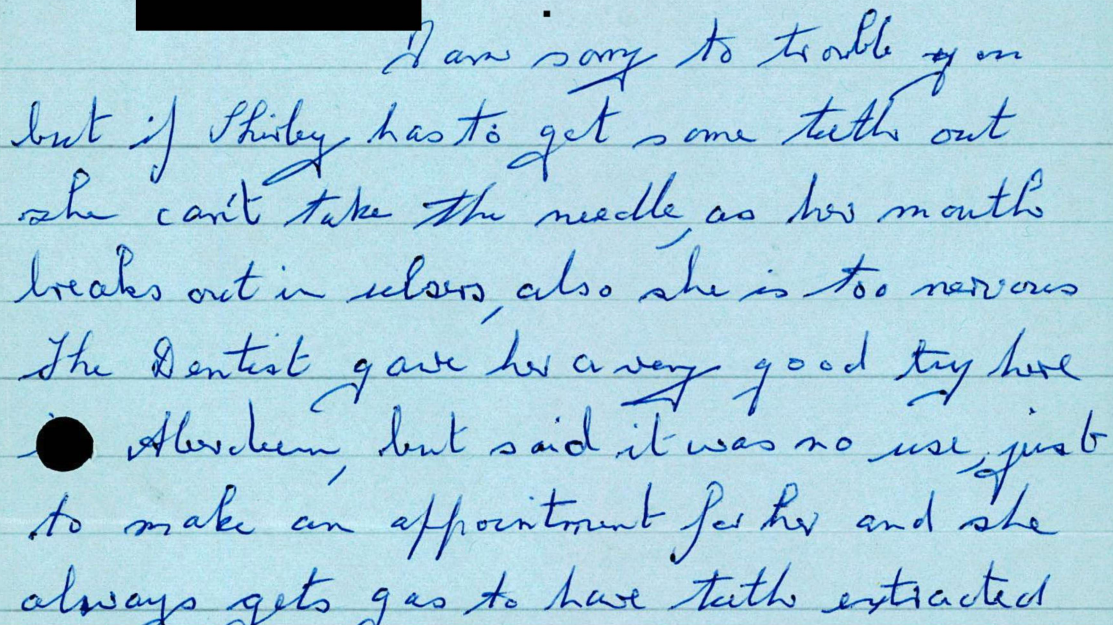 I am sorry to trouble you
but if Shirley has to get some teeth out
she can't take the needle, as her mouth
breaks out in ulsers, also she is too nervous
The Dentist gave her a very good try here
Aberdeen, but said it was no use, just
to make an appointment for her and she
always gets gas to have teeth extracted